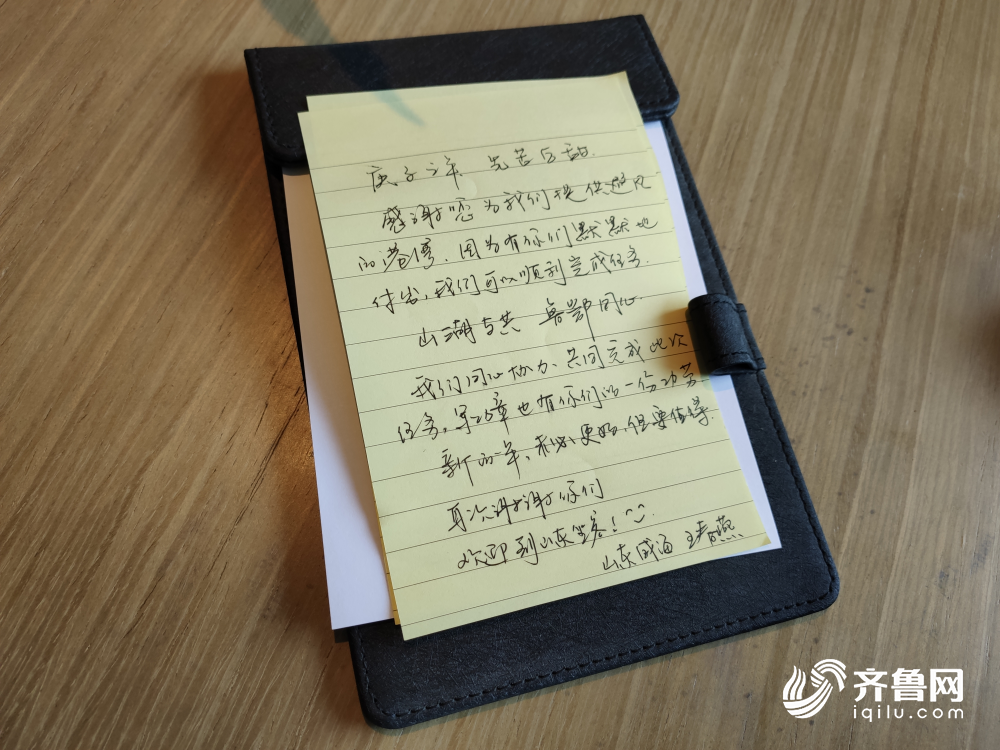 庚子之年 先苦后甜.
感谢您为我们提供避风
的港湾、因为有你们默默地
付出,我们可以顺利完成任务.
山湖与共 鲁鄂同心.
我们同心协力、共同完成此次
任务,军功章也有你们的一份功劳
新的一年,未必更好,但要值得.
再次谢谢你们
欢迎到山东坐客!^^.
山东威海 王春燕
齐鲁网
iqilu.com